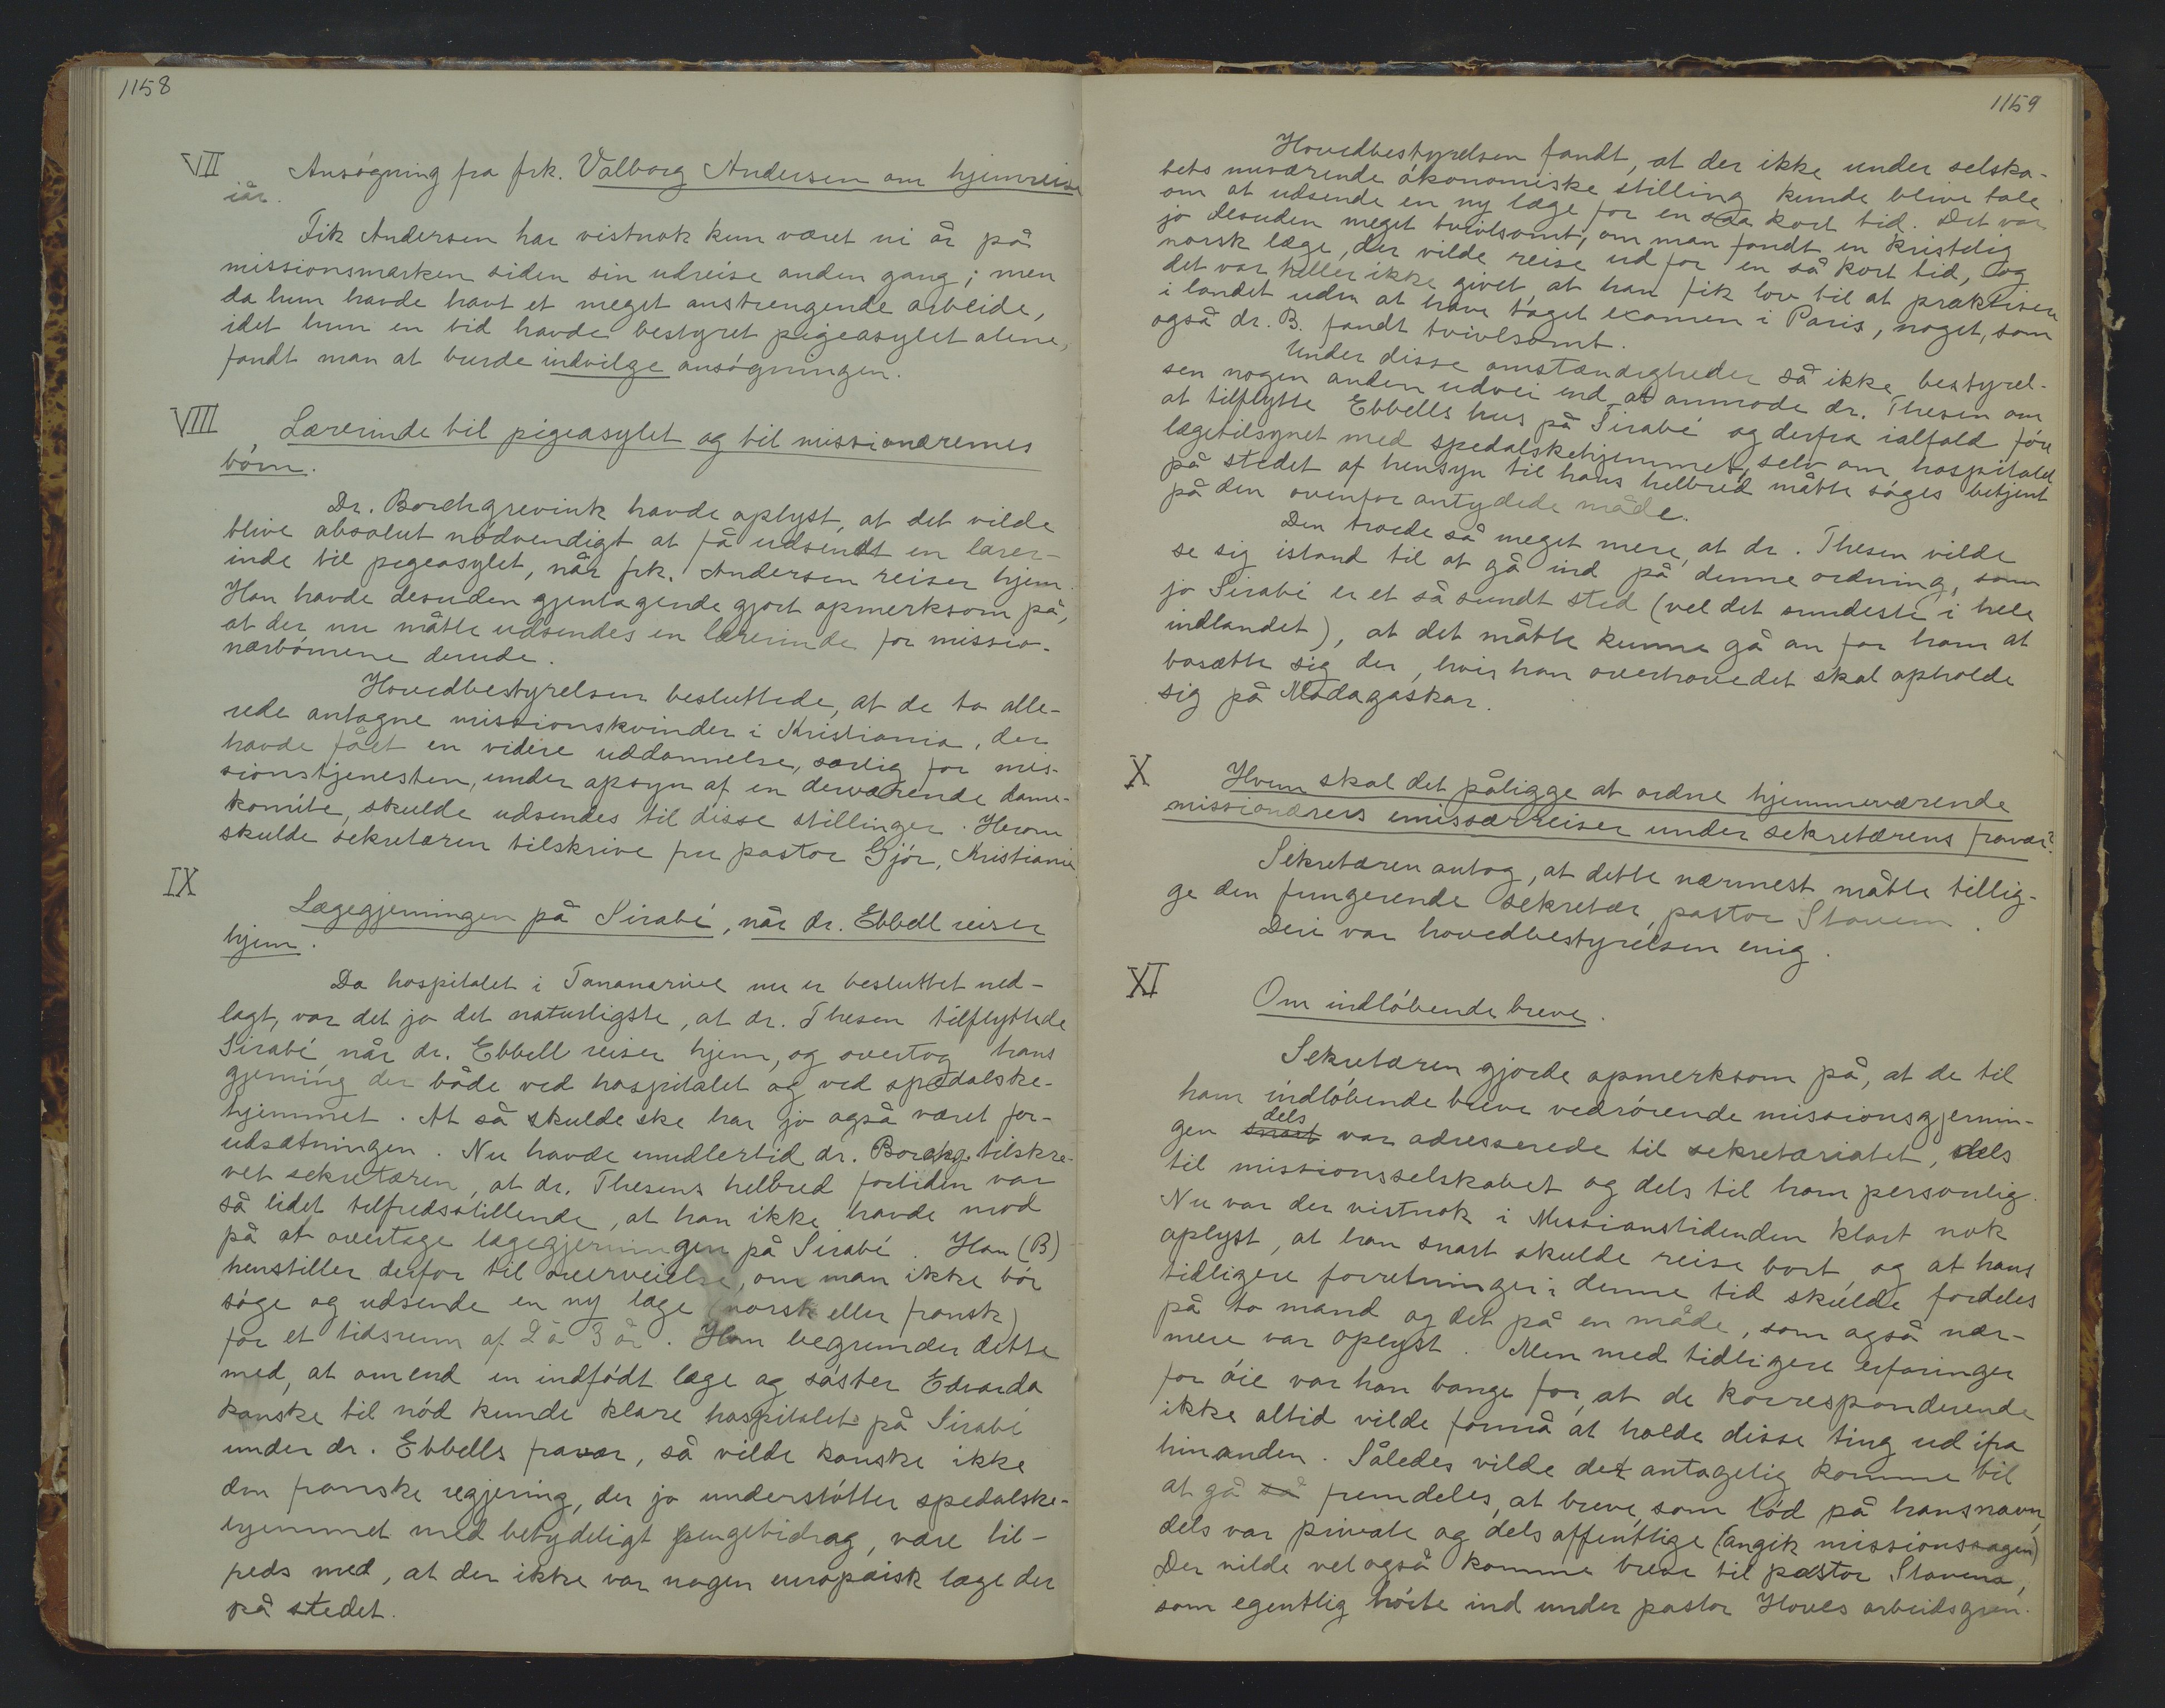 1158
VII Ansøgning fra frk. Valborg Andersen om hjemreise
iår.
Frk Andersen har vistnok kun været ni år på
missionsmarken siden sin udreise anden gang; men
da hun havde havt et meget anstrengende arbeide,
idet hun en tid havde bestyret pigeasylet alene,
fandt man at burde indvilge ansøgningen.
VIII Lærerinde til pigeasylet og til missionærernes
børn.
Dr. Borchgrevink havde oplyst, at det vilde
blive absolut nødvendigt at få udsendt en lærer-
inde til pigeasylet, når frk. Andersen reiser hjem.
Han havde desuden gjentagende gjort opmerksom på,
at der nu måtte udsendes en lærerinde for missio-
nærbørnene derude.
Hovedbestyrelsen besluttede, at de to alle-
rede antagne missionskvinder i Kristiania, der
havde fået en videre uddannelse, særlig for mis-
sionstjenesten, under opsyn af en derværende dame-
komite, skulde udsendes til disse stillinger. Herom
skulde sekretæren tilskrive fru pastor Gjør, Kristiania
IX
Lægegjerningen på Sirabé, når dr. Ebbell reiser
hjem.
Da hospitalet i Tananarive nu er besluttet ned-
lagt, var det jo det naturligste, at dr. Thesen tilflyttede
Sirabé når dr. Ebbell reiser hjem, og overtog hans
gjerning der både ved hospitalet og ved spedalske-
hjemmet. At så skulde ske har jo også været for-
udsætningen. Nu havde imidlertid dr. Borchg. tilskre-
vet sekretæren, at dr. Thesens helbred fortiden var
så lidet tilfredsstillende, at han ikke havde mod
på at overtage lægegjerningen på Sirabé. Han (B)
henstiller derfor til overveielse, om man ikke bør
søge og udsende en ny læge (norsk eller fransk)
for et tidsrum af 2 à 3 år. Han begrunder dette
med, at om end en indfødt læge og søster Edvarda
kanske til nød kunde klare hospitalet på Sirabé
under dr. Ebbells fravær, så vilde kanske ikke
den franske regjering, der jo understøtter spedalske-
hjemmet med betydeligt pengebidrag, være til-
freds med, at der ikke var nogen europæisk læge der
på stedet.
1159
Hovedbestyrelsen fandt, at der ikke under selska-
bets nuværende økonomiske stilling kunde blive tale
om at udsende en ny læge for en saa kort tid. Det var
jo desuden meget tvivlsomt, om man fandt en kristelig
norsk læge, der vilde reise ud for en så kort tid, og
det var heller ikke givet at han fik lov til at praktisere
i landet uden at have taget examen i Paris, noget, som
også dr. B. fandt tvivlsomt.
Under disse omstændigheder så ikke bestyrel-
sen nogen anden udvei end at anmode dr. Thesen om
at tilflytte Ebbells hus på Sirabé og derfra ialfald føre
lægetilsynet med spedalskehjemmet, selv om hospitalet
på stedet af hensyn til hans helbred måtte søges betjent
på den ovenfor antydede måde.
Den troede så meget mere, at dr. Thesen vilde
se sig istand til at gå ind på denne ordning, som
jo Sirabé er et så sundt sted (vel det sundeste i hele
indlandet), at det måtte kunne gå an for ham at
bosætte sig der, hvis han overhovedet skal opholde
sig på Madagaskar.
X Hvem skal det påligge at ordne hjemmeværende
missionærers emissærreiser under sekretærens fravær?
Sekretæren antog, at dette nærmest måtte tillig-
ge den fungerende sekretær, pastor Stavem.
Deri var hovedbestyrelsen enig.
XI
Om indløbende breve.
Sekretæren gjorde opmerksom på, at de til
ham indløbende breve vedrørende missionsgjernin-
gen snart dels var adresserede til sekretariatet, dels
til missionsselskabet og dels til ham personlig.
Nu var der vistnok i Missionstidenden klart nok
oplyst, at han snart skulde reise bort og at hans
tidligere forretninger i denne tid skulde fordeles
på to mand og det på en måde, som også nær-
mere var oplyst. Men med tidligere erfaringer
for øie var han bange for, at de korresponderende
ikke altid vilde formå at holde disse ting ud ifra
hinanden. Således vilde det antagelig komme til
at gå så fremdeles, at breve, som lød på hans navn,
dels var private og dels offentlige (angik missionssagen)
Der vilde vel også komme breve til pastor Stavem,
som egentlig hørte ind under pastor Hoves arbeidsgren.